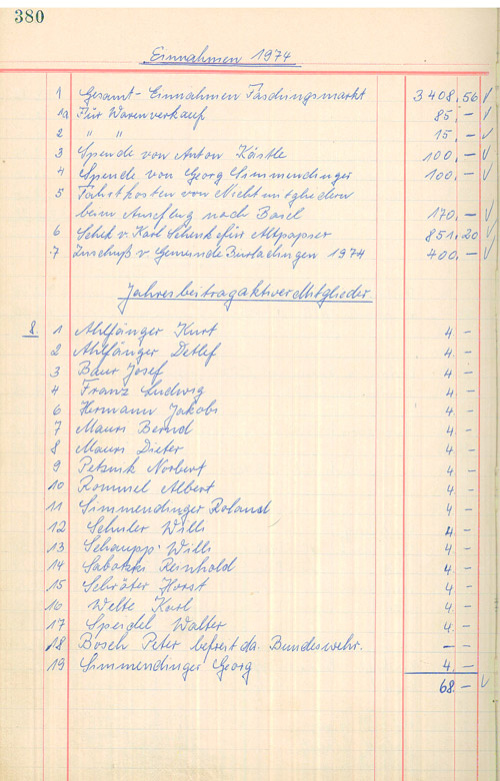 380
Einnahmen 1974
1 Gesamt-Einnahmen Faschingsmarkt 3408.56 √
1a Für Warenverkauf 85.— √
2 " " 15.— √
3 Spende von Anton Kästle 100.— √
4 Spende von Georg Simmendinger 100.— √
5 Fahrtkosten von Nichtmitgliedern
beim Ausflug nach Basel 170.— √
6 Schek v. Karl Schenk für Altpapier 851.20 √
7 Zuschuß v. Gemeinde Burladingen 1974 400.— √
Jahresbeitrag aktiver Mitglieder
8. 1 Ahlfänger Kurt 4.—
2 Ahlfänger Detlef 4.—
3 Baur Josef 4.—
4 Franz Ludwig 4.—
6 Hermann Jakobi 4.—
7 Mauri Bernd 4.—
8 Mauri Dieter 4.—
9 Petznik Norbert 4.—
10 Rommel Albert 4.—
11 Simmendinger Roland 4.—
12 Schuler Willi 4.—
13 Schaupp Willi 4.—
14 Sabotki Reinhold 4.—
15 Schröter Horst 4.—
16 Welte Karl 4.—
17 Speidel Walter 4.—
18 Bosch Peter befreit da Bundeswehr. — —
19 Simmendinger Georg 4.—
68.— √